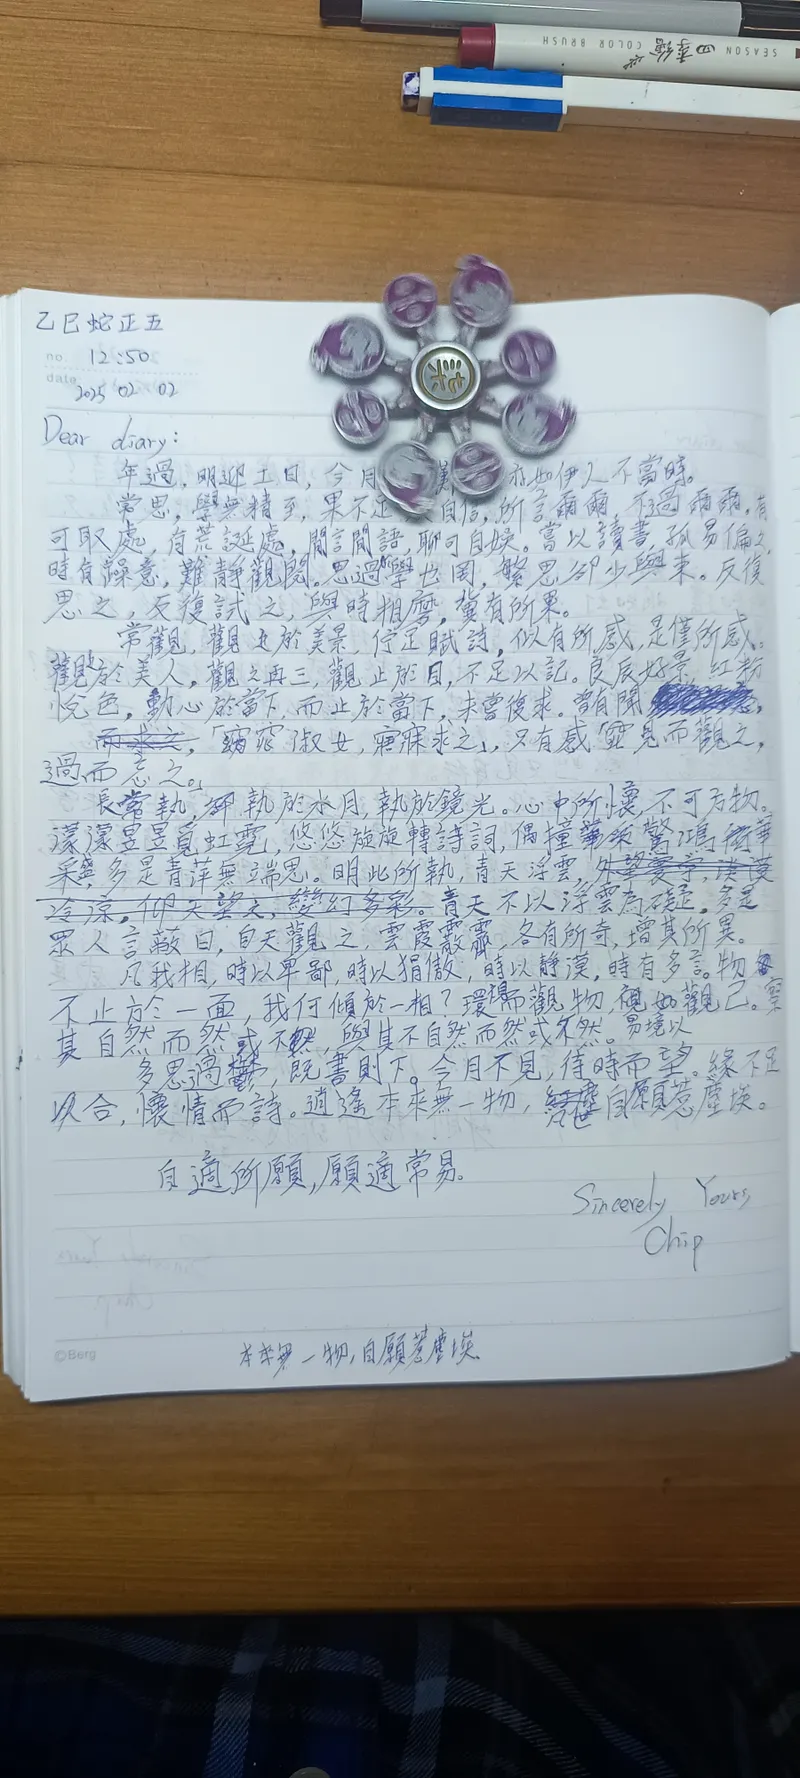 SEASON COLOR BRUSH 四季繪
乙巳蛇正五
no. 12:50
date 2025 02 02
Dear diary:
年過，明迎工日，今月 亦如伊人不當時。
常思，學無精至，果不足 自信，所言爾爾，不過爾爾，有
可取處，有荒誕處，閒言閒語，聊可自娛。嘗以讀書，孤易偏之，
時有躁意，難靜觀閱。思過學也罔，繁思卻少與束。反復
思之，反復試之，與時相磨，冀有所果。
常觀，觀止於美景，佇足賦詩，似有所感，是僅所感。
觀止於美人，觀之再三，觀止於目，不足以記。良辰好景，紅粉
悅色，動心於當下，而止於當下，未嘗復求。曾有聞
而求之，「窈窕淑女，寤寐求之」，只有感「雲見而觀之，
過而忘之。」
長常執，卻執於水月，執於鏡光。心中所懷，不可方物。
濛濛昱昱覓虹霓，悠悠旋旋轉詩詞，偶撞 驚鴻 華
采盛，多是青萍無端思。明此所執，青天浮雲，
冷涼，仰天望之，變幻多彩。青天不以浮雲為礙，多是
眾人言蔽白，自天觀之，雲霞靉靆，各有所奇，增其所異。
凡我相，時以卑鄙，時以狷傲，時以靜漠，時有多言。物
不止於一面，我何傾於一相？環場而觀物，視如觀己。察
其自然而然或不然，與其不自然而然或不然。易境以
多思過鬱，既書則下。今月不見，待時而望。緣不足
以合，懷情而詩。逍遙本來無一物，自願惹塵埃。
自適所願，願適常易。
Sincerely Yours
Chip
©Berg
本來無一物，自願惹塵埃